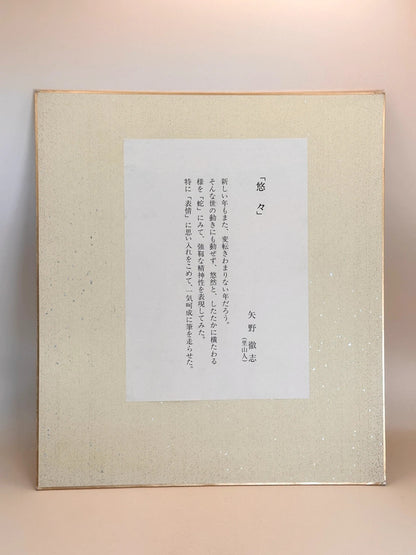 「悠々」
矢野徹志
(里山人)
新しい年もまた、変転きわまりない年だろう。
そんな世の動きにも動ぜず、悠然と、したたかに横たわる
様を「蛇」にみて、強靱な精神性を表現してみた。
特に「表情」に思い入れをこめて、一気呵成に筆を走らせた。